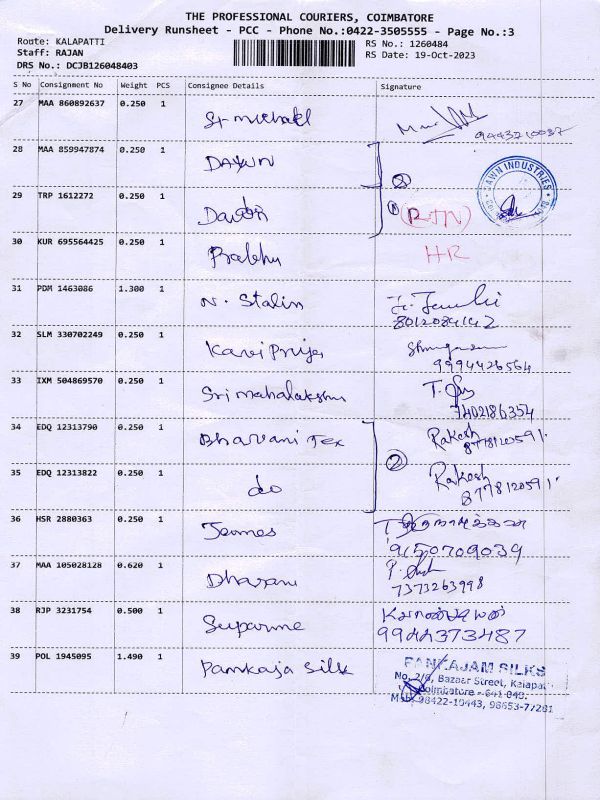 THE PROFESSIONAL COURIERS, COIMBATORE
Delivery Runsheet - PCC - Phone No.:0422-3505555 - Page No.:3
Route: KALAPATTI
RS No.: 1260484
Staff: RAJAN
RS Date: 19-Oct-2023
DRS No.: DCJB126048403
S No Consignment No Weight PCS Consignee Details Signature
27 MAA 860892637 0.250 1 St michael 9443210037
28 MAA 859947874 0.250 1 DAWN
29 TRP 1612272 0.250 1
30 KUR 695564425 0.250 1 Prabhu HR
31 PDM 1463086 1.300 1 N. Stalin
8012084142
32 SLM 330702249 0.250 1 Kavi Priya
9994426564
33 IXM 504869570 0.250 1 Sri mahalakshmi
7402186354
34 EDQ 12313790 0.250 1 Bhavani Tex Rakesh
8778120591
35 EDQ 12313822 0.250 1 do Rakesh
8778120591
36 HSR 2880363 0.250 1 James
9150709039
37 MAA 105028128 0.620 1 Dharani
7373263998
38 RJP 3231754 0.500 1 Supreme
9944373487
39 POL 1945095 1.490 1 Pankaja Silk
PANKAJAM SILKS
No. 2/6, Bazaar Street, Kalapatti
Coimbatore - 641 048.
Mob: 98422-10443, 98653-77281
DAWN INDUSTRIES